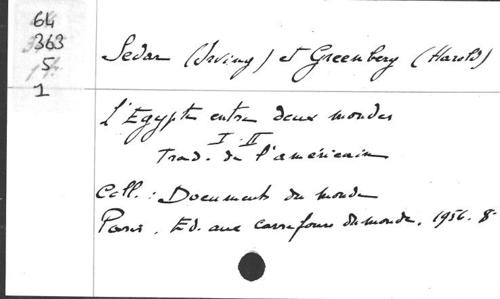 64
363
5
1
Sedar (Irving) et Greenberg (Harold)
L'Egypte entre deux mondes
I. II
Trad. de l'américain
Coll. : Documents du monde
Paris. Ed. aux carrefours du monde. 1956. 8°